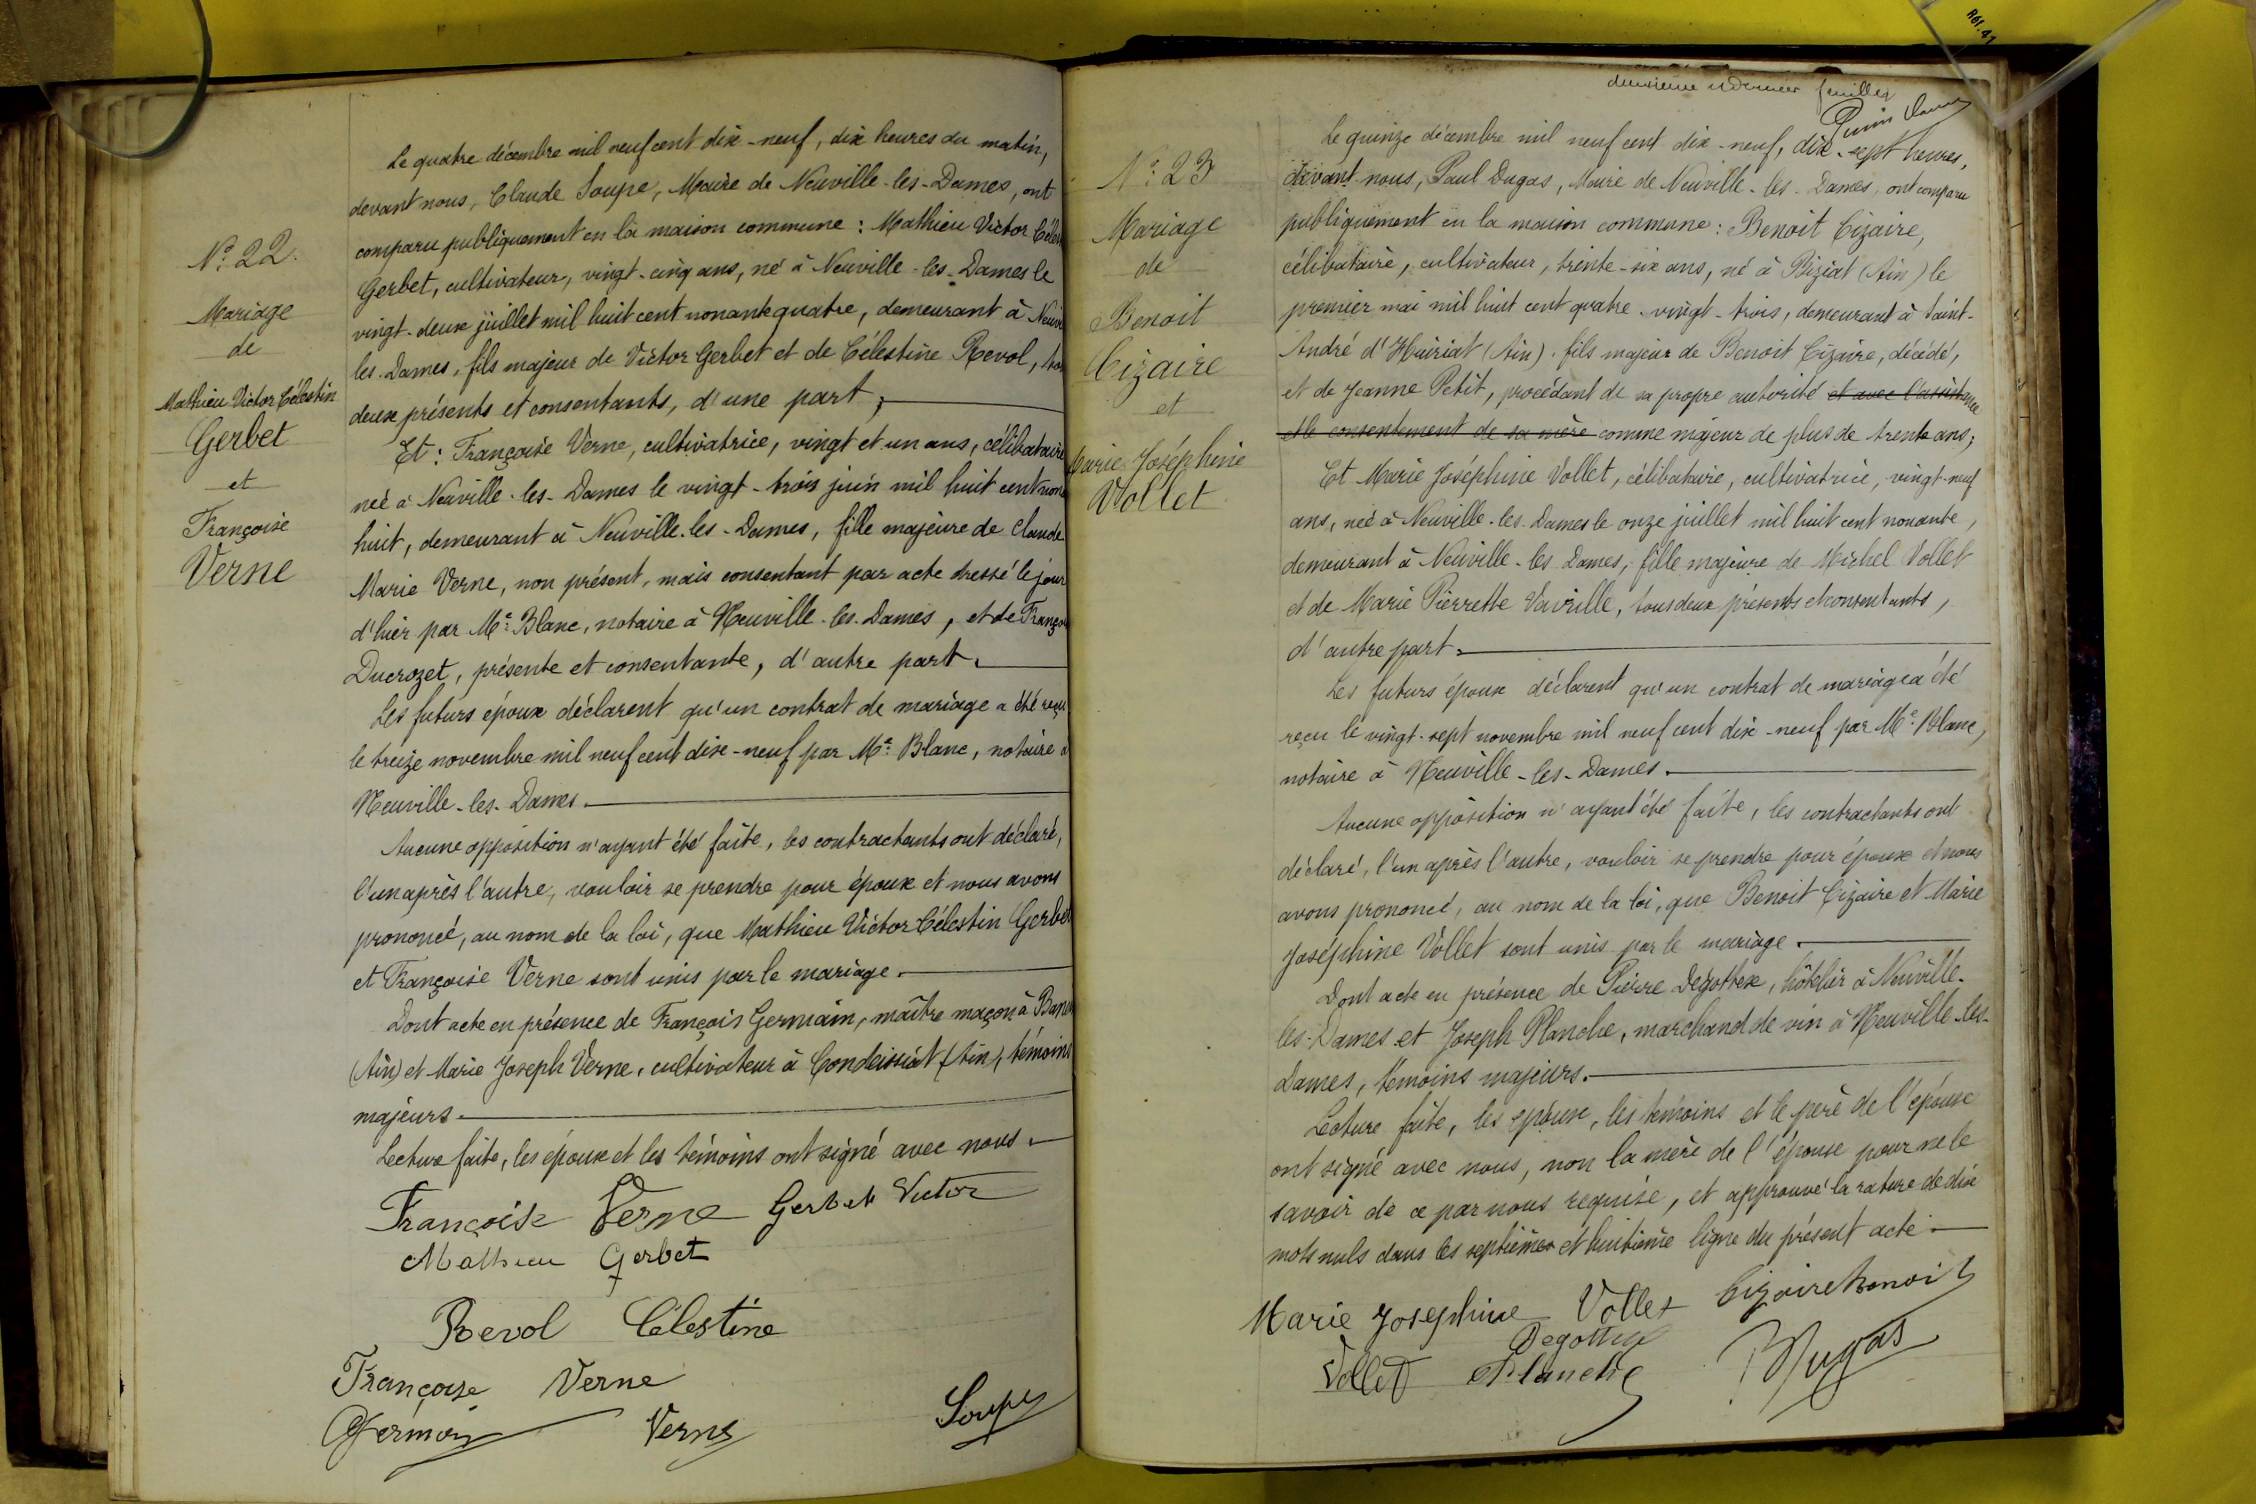 N° 22.
Mariage
de
Mathieu Victor Célestin
Gerbet
et
Françoise
Verne
Le quatre décembre mil neuf cent dix-neuf, dix heures du matin,
devant nous, Claude Soupe, Maire de Neuville-les-Dames, ont
comparu publiquement en la maison commune : Mathieu Victor Céles
Gerbet, cultivateur, vingt-cinq ans, né à Neuville-les-Dames le
vingt-deux juillet mil huit cent nonante quatre, demeurant à Neuvi
les-Dames, fils majeur de Victor Gerbet et de Célestine Revol, tou
deux présents et consentants, d'une part ;
Et : Françoise Verne, cultivatrice, vingt et un ans, célibataire
née à Neuville-les-Dames le vingt-trois juin mil huit cent nona
huit, demeurant à Neuville-les-Dames, fille majeure de Claude
Marie Verne, non présent, mais consentant par acte dressé le jour
d'hier par Me Blanc, notaire à Neuville-les-Dames, et de Franço
Ducrozet, présente et consentante, d'autre part.
Les futurs époux déclarent qu'un contrat de mariage a été reçu
le treize novembre mil neuf cent dix-neuf par Me Blanc, notaire à
Neuville-les-Dames.
Aucune opposition n'ayant été faite, les contractants ont déclaré,
l'un après l'autre, vouloir se prendre pour époux et nous avons
prononcé, au nom de la loi, que Mathieu Victor Célestin Gerbet
et Françoise Verne sont unis par le mariage.
Dont acte en présence de François Germain, maître maçon à Ban
(Ain) et Marie Joseph Verne, cultivateur à Condeissiat (Ain), témoins
majeurs.
Lecture faite, les époux et les témoins ont signé avec nous.
Françoise Verne Gerbet Victor
Mathieu Gerbet
Revol Célestine
Françoise Verne
Germain Verne Soupe
R61.41
deuxième et dernier feuillet
N° 23
Mariage
de
Benoit
Cizaire
et
Marie Joséphine
Vollet
Le quinze décembre mil neuf cent dix-neuf, dix-sept heures,
devant nous, Paul Dugas, Maire de Neuville-les-Dames, ont comparu
publiquement en la maison commune : Benoit Cizaire,
célibataire, cultivateur, trente-six ans, né à Biziat (Ain) le
premier mai mil huit cent quatre-vingt-trois, demeurant à Saint-
André d'Huiriat (Ain). fils majeur de Benoit Cizaire, décédé,
et de Jeanne Petit, procédant de sa propre autorité et avec l'assistance
et le consentement de sa mère comme majeur de plus de trente ans ;
Et Marie Joséphine Vollet, célibataire, cultivatrice, vingt-neuf
ans, née à Neuville-les-Dames le onze juillet mil huit cent nonante,
demeurant à Neuville-les Dames, fille majeure de Michel Vollet
et de Marie Pierrette Vavrille, tous deux présents et consentants,
d'autre part.
Les futurs époux déclarent qu'un contrat de mariage a été
reçu le vingt-sept novembre mil neuf cent dix-neuf par Me Blanc,
notaire à Neuville-les-Dames.
Aucune opposition n'ayant été faite, les contractants ont
déclaré, l'un après l'autre, vouloir se prendre pour époux et nous
avons prononcé, au nom de la loi, que Benoit Cizaire et Marie
Joséphine Vollet sont unis par le mariage.
Dont acte en présence de Pierre Degottex, hôtelier à Neuville-
les-Dames et Joseph Planche, marchand de vin à Neuville-les-
Dames, témoins majeurs.
Lecture faite, les époux, les témoins et le père de l'épouse
ont signé avec nous, non la mère de l'épouse pour ne le
savoir de ce par nous requise, et approuvé la rature de dix
mots nuls dans les septième et huitième ligne du présent acte.
Marie Josephine Vollet Cizaire Benoit
Degottex
Vollet Planche PDugas